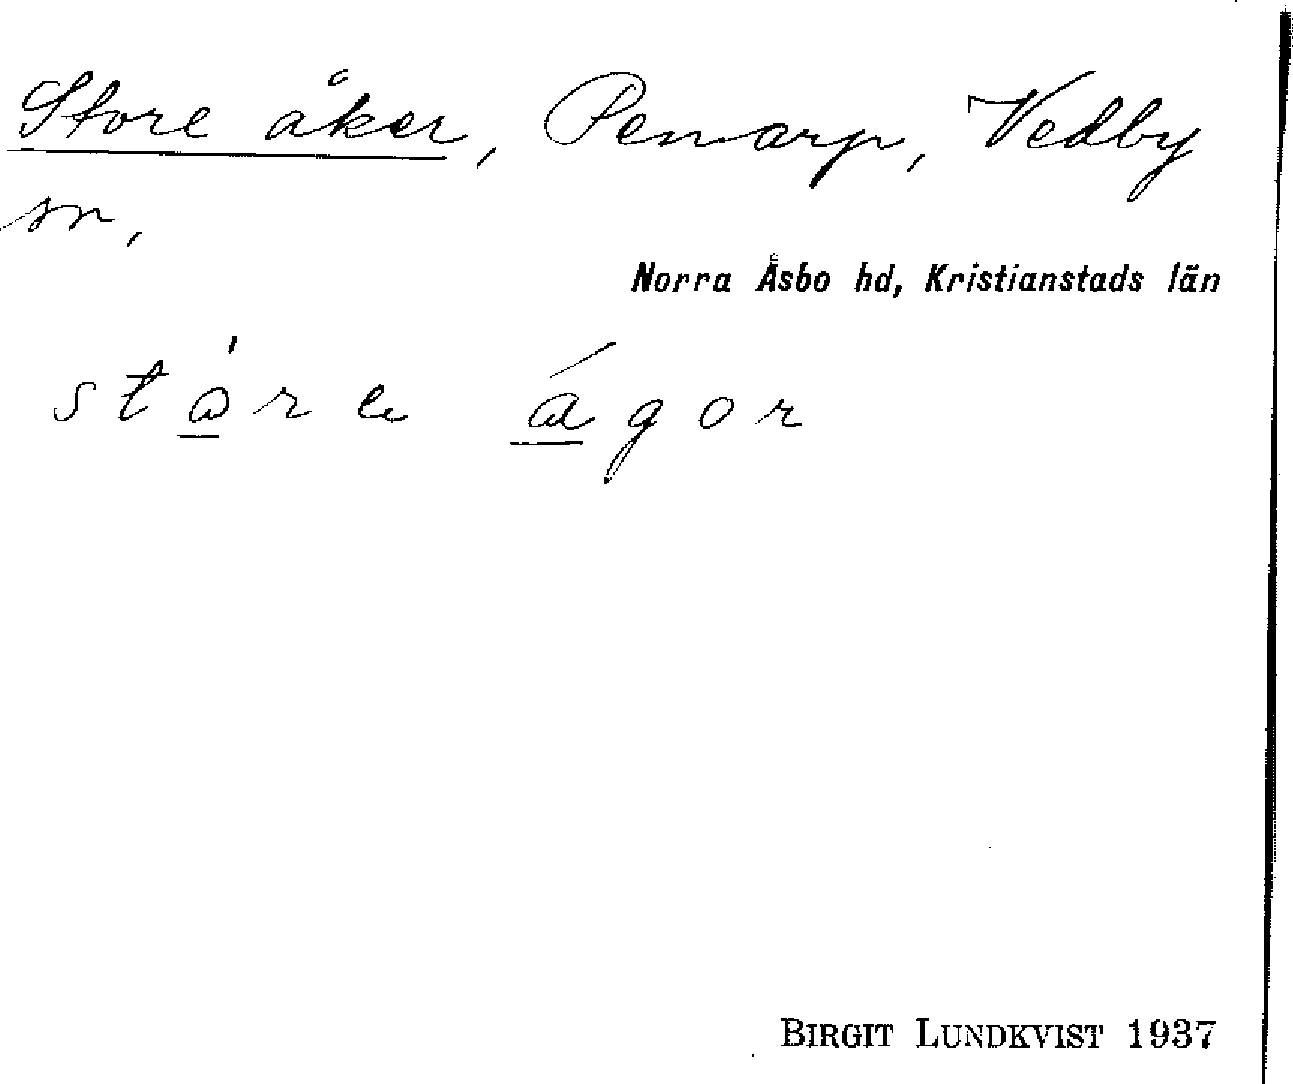 Store åker, Penarp, Vedby
sn,
Norra Åsbo hd, Kristianstads län
BIRGIT LUNDKVIST 1937